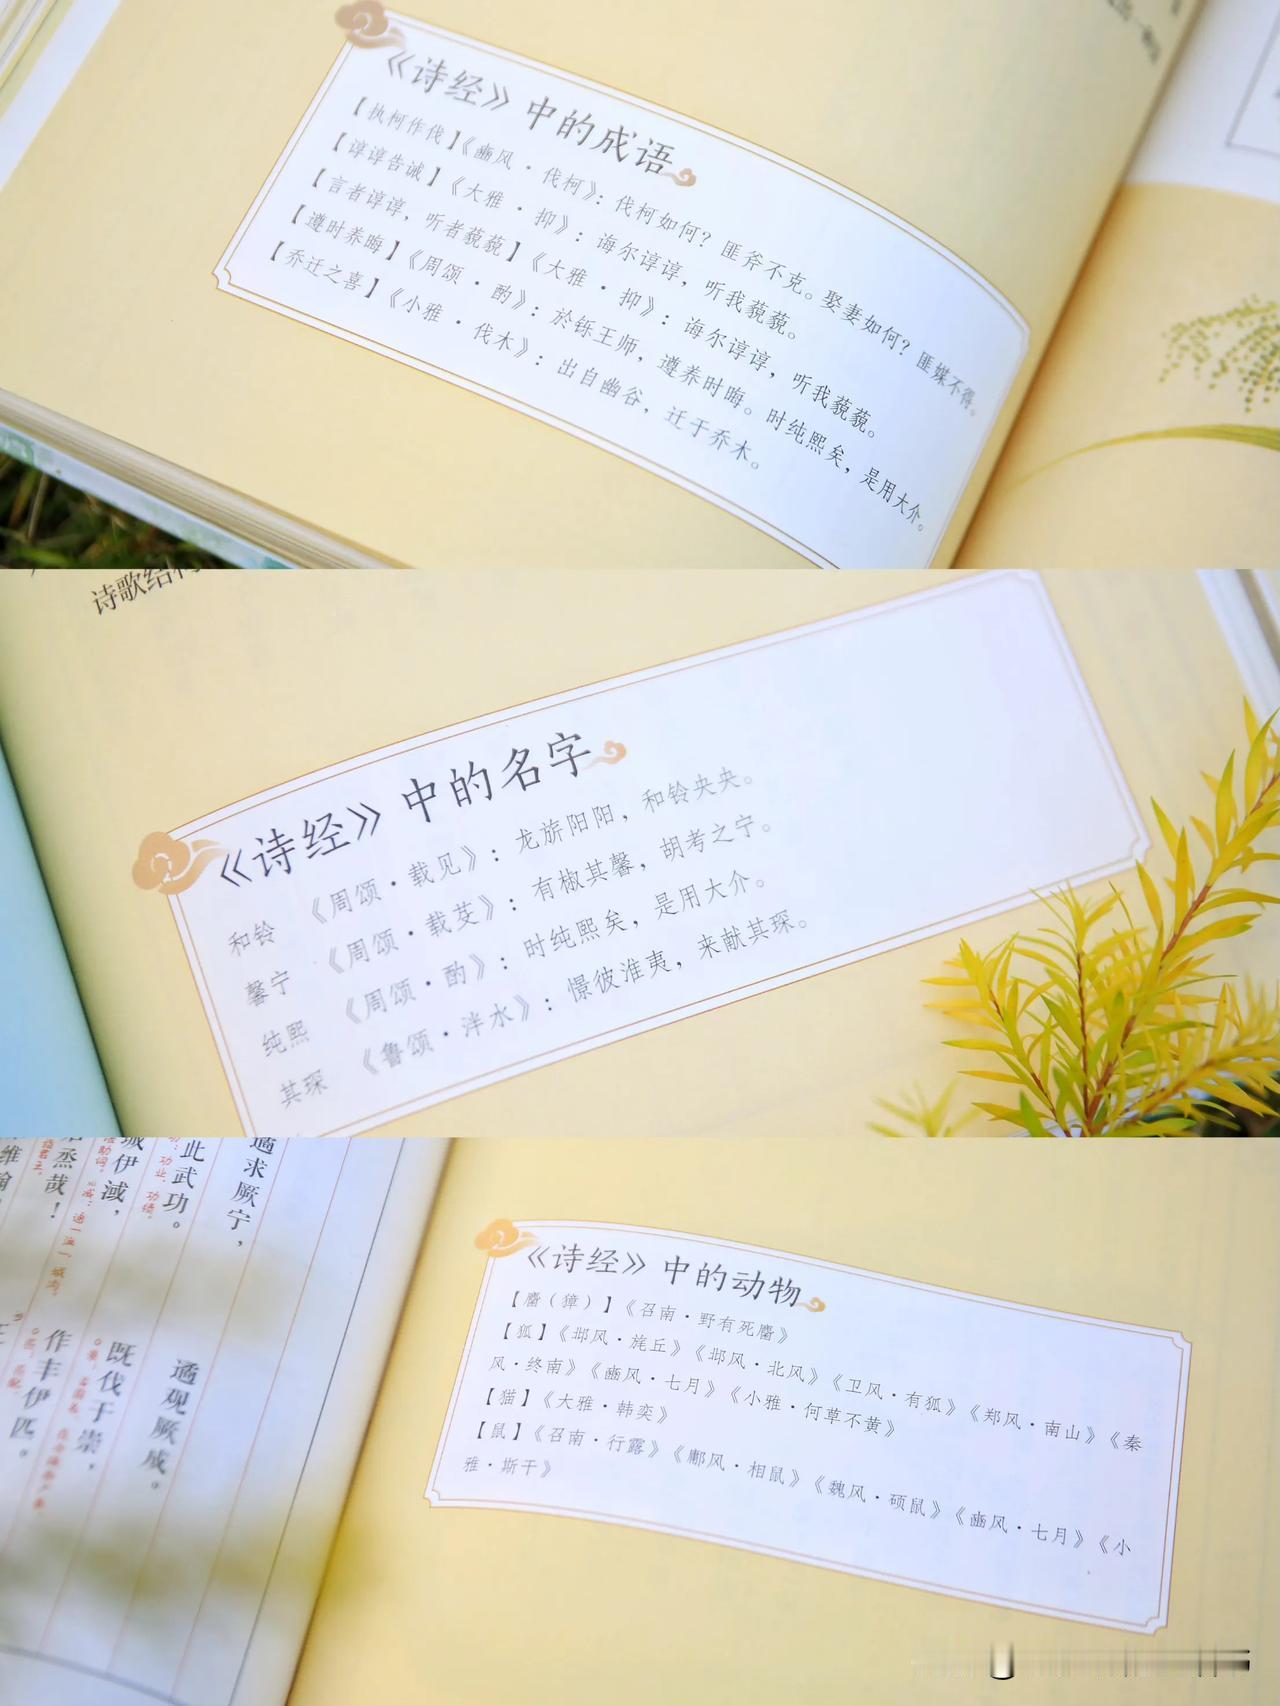 《诗经》中的成语
【执柯作伐】《豳风·伐柯》：伐柯如何？匪斧不克。娶妻如何？匪媒不得。
【谆谆告诫】《大雅·抑》：诲尔谆谆，听我藐藐。
【言者谆谆，听者藐藐】《大雅·抑》：诲尔谆谆，听我藐藐。
【遵时养晦】《周颂·酌》：於铄王师，遵养时晦。时纯熙矣，是用大介。
【乔迁之喜】《小雅·伐木》：出自幽谷，迁于乔木。
诗歌结构
《诗经》中的名字
和铃 《周颂·载见》：龙旂阳阳，和铃央央。
馨宁 《周颂·载芟》：有椒其馨，胡考之宁。
纯熙 《周颂·酌》：时纯熙矣，是用大介。
其琛 《鲁颂·泮水》：憬彼淮夷，来献其琛。
遹求厥宁，
遹观厥成。
此武功。
既伐于崇，
城伊淢，
作丰伊匹。
烝哉！
维翰
《诗经》中的动物
【麕（獐）】《召南·野有死麕》
【狐】《邶风·旄丘》《邶风·北风》《卫风·有狐》《郑风·南山》《秦
风·终南》《豳风·七月》《小雅·何草不黄》
【猫】《大雅·韩奕》
【鼠】《召南·行露》《鄘风·相鼠》《魏风·硕鼠》《豳风·七月》《小
雅·斯干》